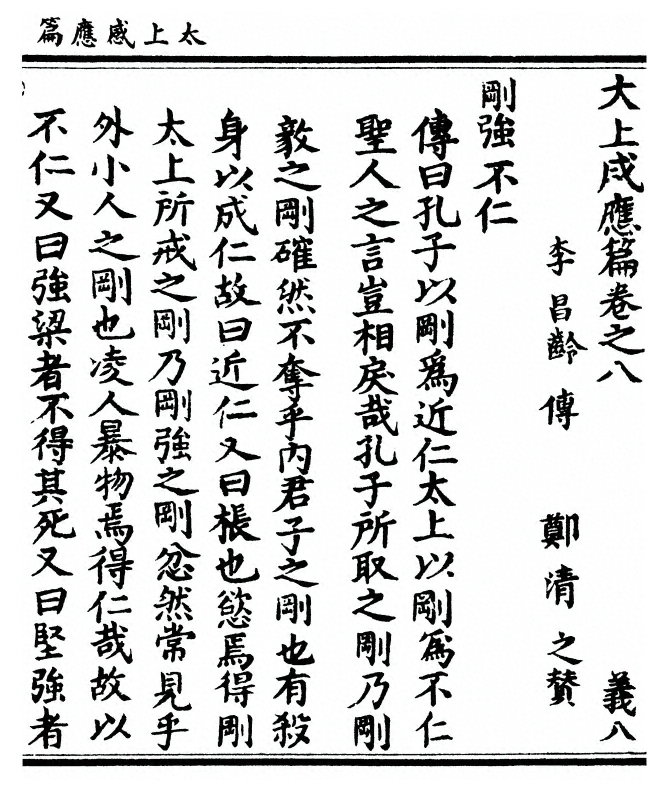 太上感應篇
大上感應篇卷之八
義八
李昌齡傳
鄭清之贊
剛強不仁
傳曰孔子以剛爲近仁太上以剛爲不仁
聖人之言豈相戾哉孔子所取之剛乃剛
毅之剛確然不奪乎內君子之剛也有殺
身以成仁故曰近仁又曰棖也慾焉得剛
太上所戒之剛乃剛強之剛忿然常見乎
外小人之剛也凌人暴物焉得仁哉故以
不仁又曰強梁者不得其死又曰堅強者